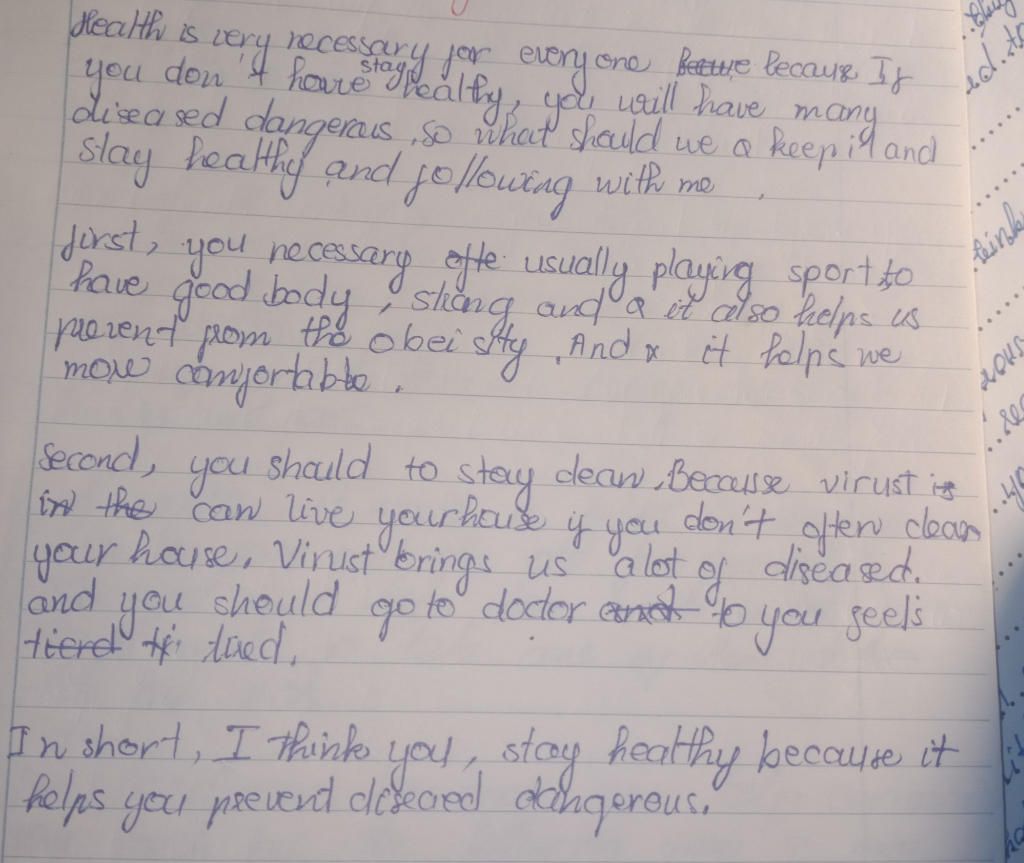 Health is very necessary for everyone because If
you don't have stay healthy, you will have many
diseased dangerous, so what should we a keep it and
stay healthy and following with me.
first, you necessary ofte usually playing sport to
have good body, strong and a it also helps us
prevent from the obeisity. And x it helps we
more comfortable.
second, you should to stay clean. Because virust is
in the can live your house if you don't often clean
your house. Virust brings us a lot of diseased.
and you should go to doctor and to you feels
tierd ti tired.
In short, I think you, stay healthy because it
helps you prevent diseaed dangerous.